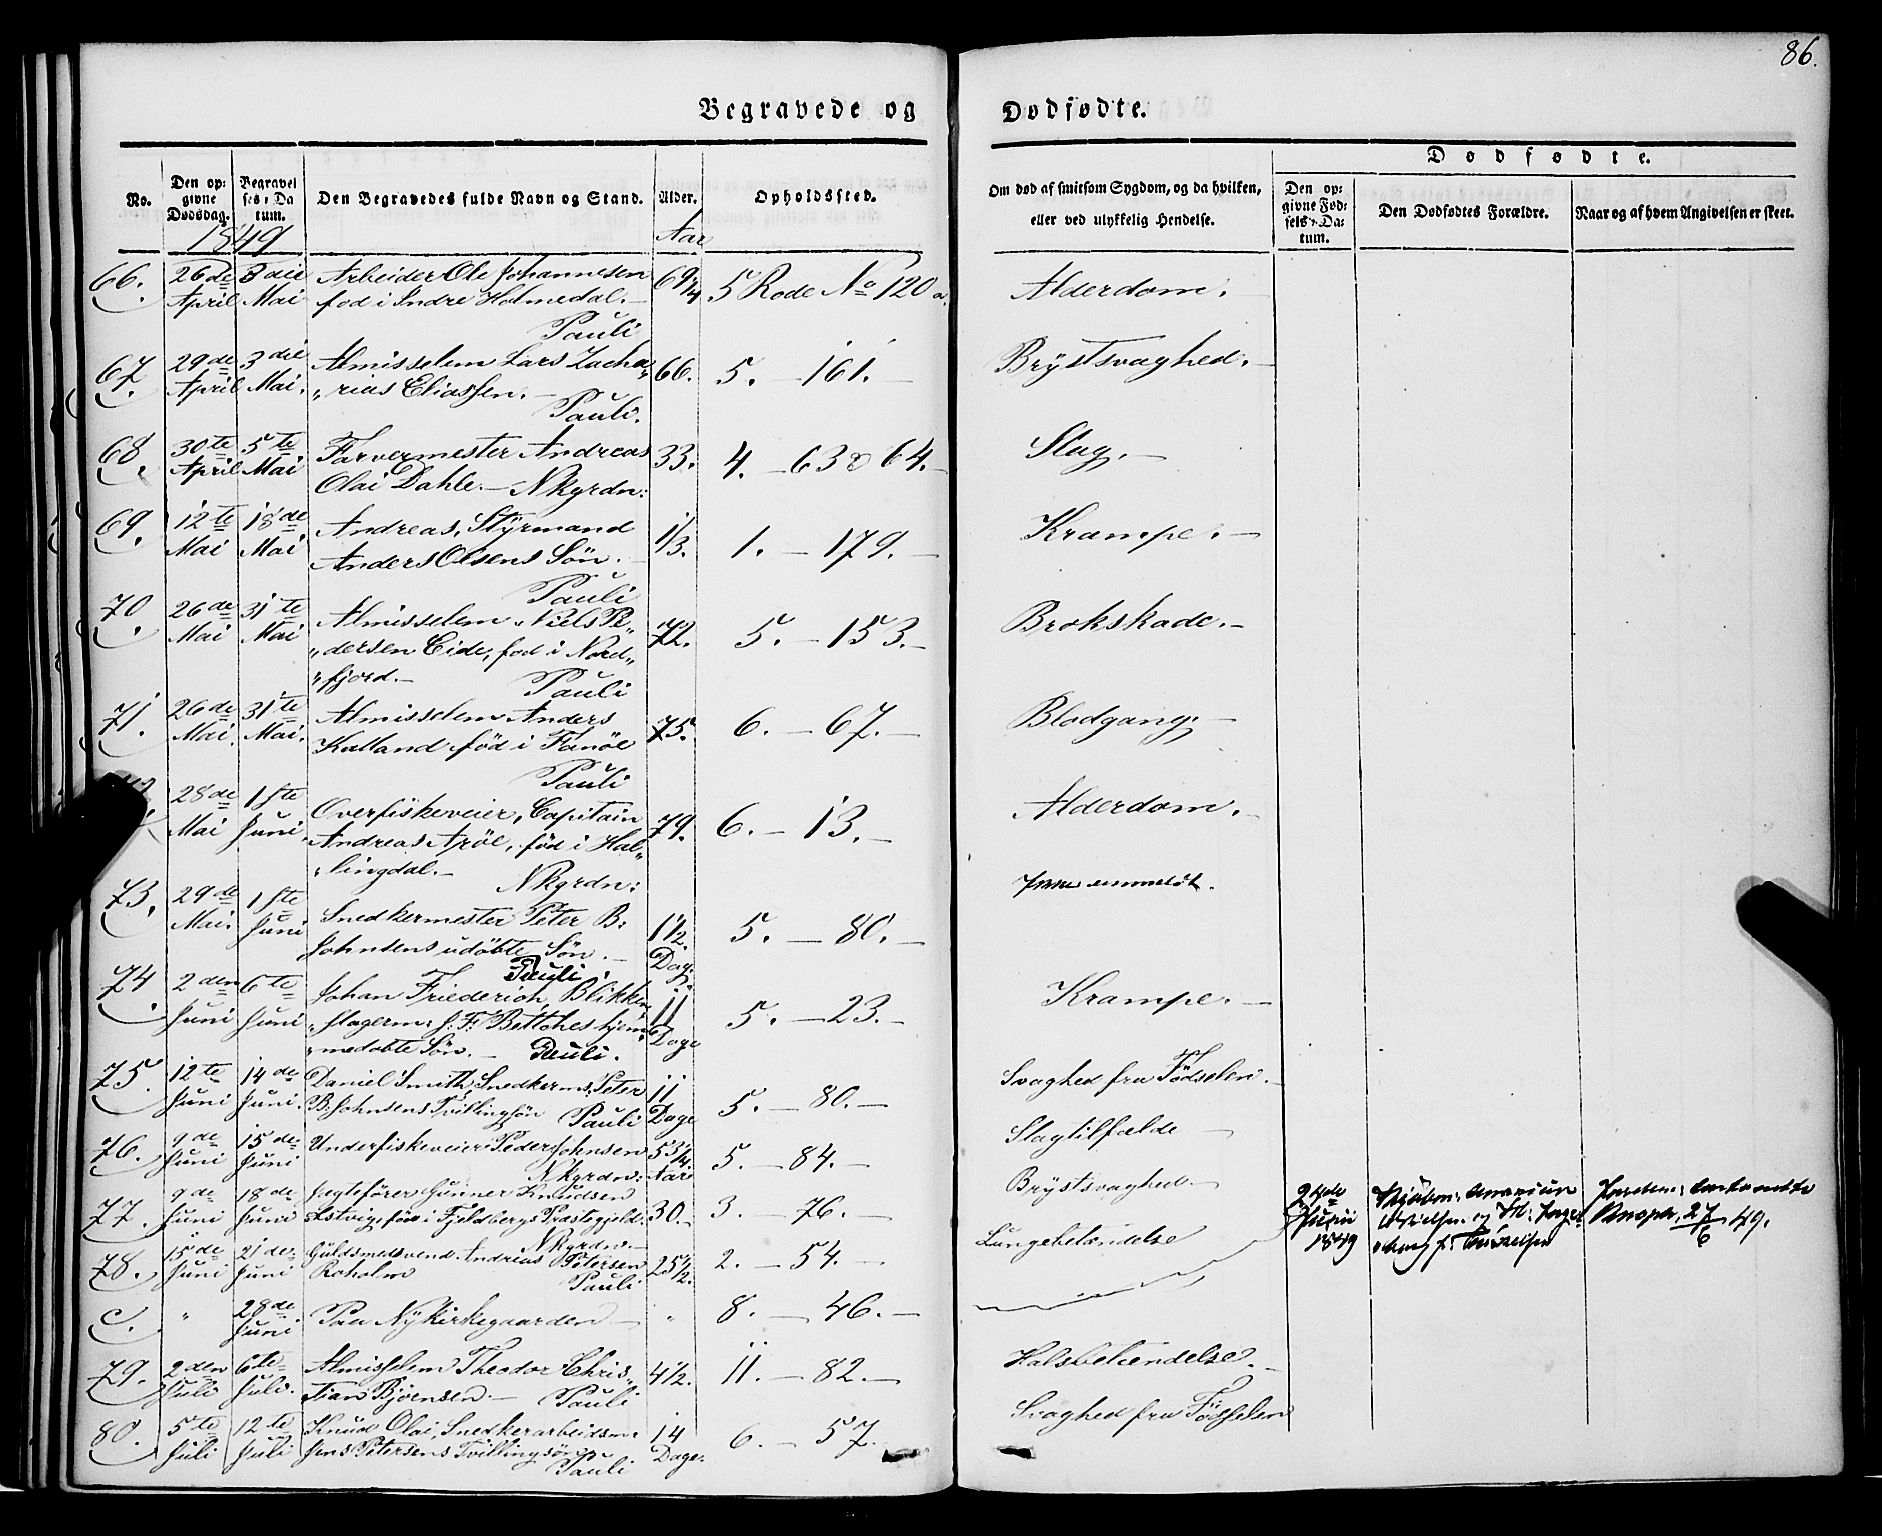 86.
Begravede og Dødfødte.
No.
Den opgivne Dødsdag.
Begravelses-Datum.
Den Begravedes fulde Navn og Stand.
Alder.
Opholdssted.
Om død af smitsom Sygdom, og da hvilken, eller ved ulykkelig Hendelse.
Dødfødte.
Den opgivne Fødsels-Datum.
Den Dødfødtes Forældre.
Naar og af hvem Angivelsen er skeet.
1849
Aar
66. 26de April 3die Mai Arbeider Ole Johannesen 69 1/4 5 Rode No 120 a. Alderdom.
fød i Indre Holmedal. —
Pauli
67. 29de April 3die Mai. Almisselem Lars Zacha„ 66. 5. — 161. — Brÿstsvaghed. —
„rias Eliassen. —
Pauli.
68. 30te April 5te Mai Farvermester Andreas 33. 4. — 63 & 64. — Slag. —
Olai Dahle. — Nkgrdn:
69. 12te Mai 18de Mai Andreas, Stÿrmand 1/3. 1. — 179. — Krampe. —
Anders Olsens Søn. —
Pauli
70. 26de Mai 31te Mai Almisselem Niels Pe„ 72. 5. — 153. — Brokskade. —
„dersen Eide, fød i Nord„
„fjord. — Pauli
71. 26de Mai. 31te Mai. Almisselem Anders 75. 6. — 67. — Blodgang. —
Kalland fød i Fanöe
Pauli
28de Mai 1ste Juni. Overfiskeveier, Capitain 79. 6. — 13. — Alderdom. —
Andreas Aröe, fød i Hal„
„lingdal. — Nkgrdn:
73. 29de Mai. 1ste Juni Snedkermester Peter B: 1 1/2. Dag. 5. — 80. — Ikke anmeldt.
Johnsens udöbte Søn. —
Pauli.
74. 2den Juni 6te Juni Johan Friederich, Blikken„ 11 Dage 5. — 23. — Krampe. —
„slagerm: J: F: Böttches hjem„
„medøbte Søn. — Pauli.
75. 12te Juni 14de Juni. Daniel Smith, Snedkerms. Peter 11 Dage 5. — 80. — Svaghed fra Födselen. —
B: Johnsens Tvillingsøn Pauli
76. 9de Juni 15de Juni Underfiskeveier Peder Johnsen 53 1/4. Aar 5. — 84. — Slagtilfælde —
Nkgrdn:
77. 9de Juni 18de Juni Jægtefører Gunner Knudsen 30. 3. — 76. — Brÿstsvaghed. —
fød i Fjeldbergs Præstegjeld.
Nkgrdn. —
78. 15de Juni 21de Juni Guldsmedsvend. Andreas Petersen 25 1/2. 2. — 54. — Lungebetændelse
Roholm Pauli
24de Juni 1849
27/6 49.
c. „ 28de Juni Paa Nÿkirkegaarden — „ 8. — 46. —
79. 2den Juli 6te Juli. Almisselem Theodor Chris„ 4 1/2. 11. — 82. — Halsbetændelse. —
„tian Bjørnsen. — Pauli
80. 5te Juli 12te Juli Knud Olai, Snedkerarbeidsm: 14 Dage. 6. — 57. Svaghed fra Födselen
Jens Petersens Tvillingsøn.
Pauli